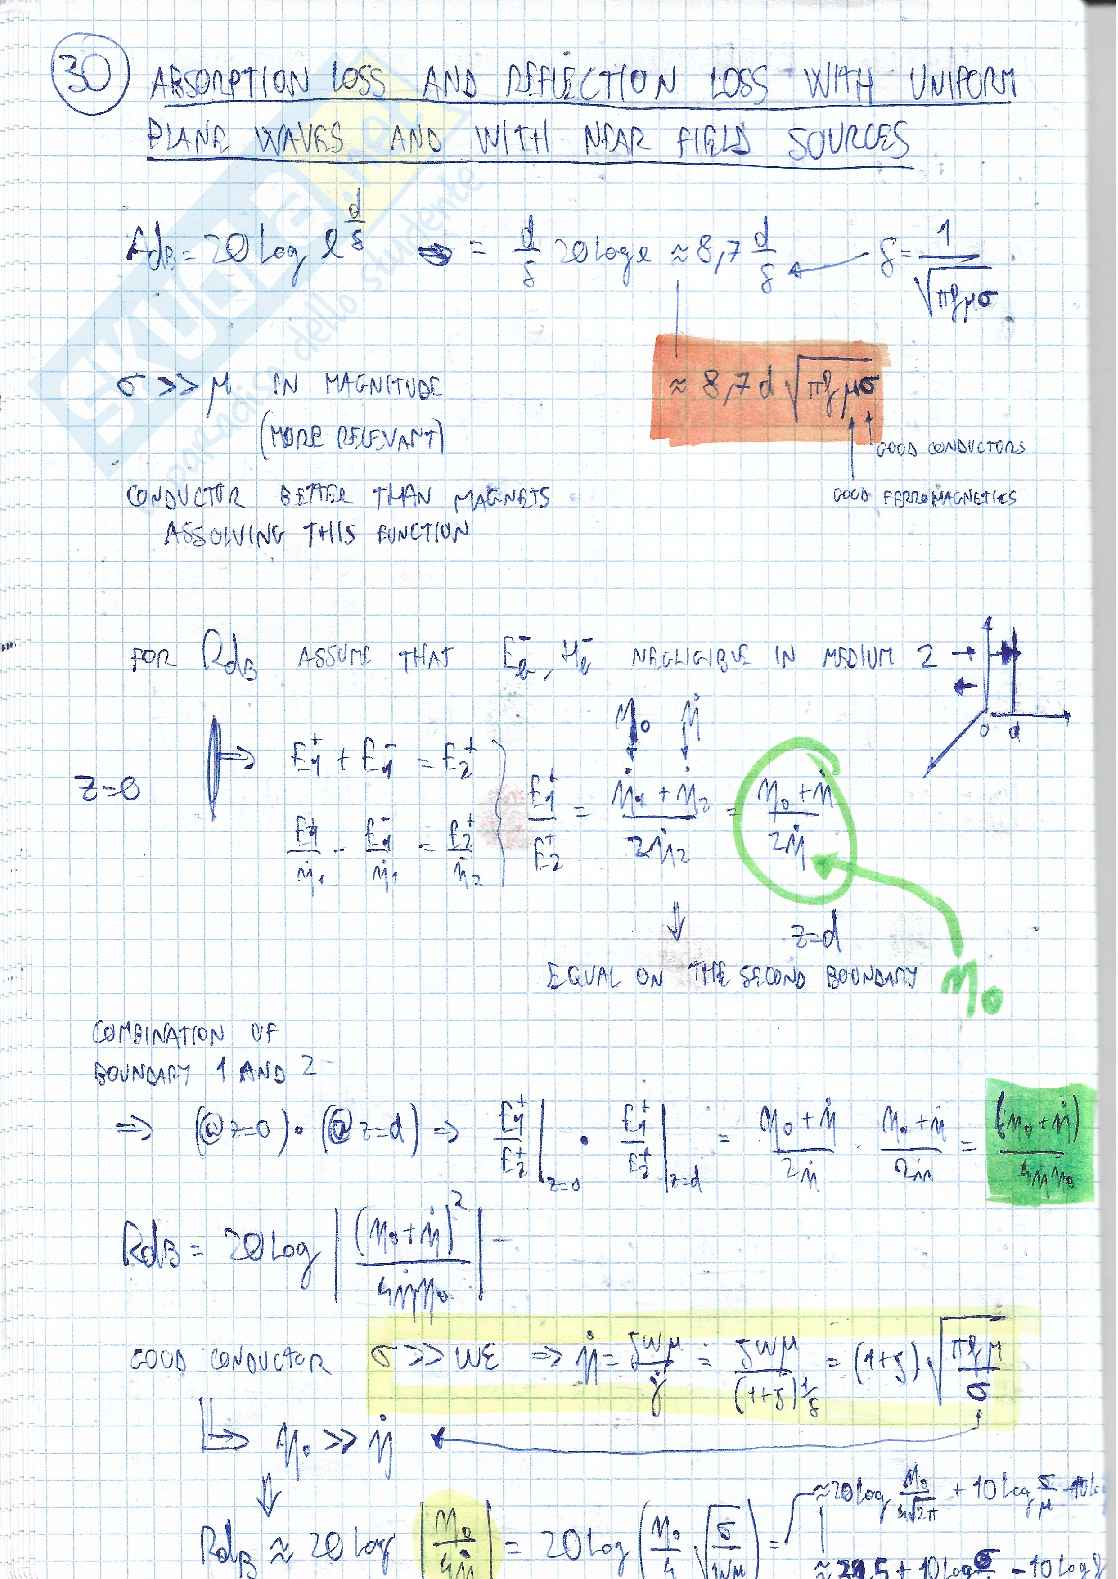 30 ABSORPTION LOSS AND REFLECTION LOSS WITH UNIFORM
PLANE WAVES AND WITH NEAR FIELD SOURCES
AdB = 20 Log e^(d/δ) = d/δ 20 Log e ≈ 8,7 d/δ ← δ = 1/√(πfμσ)
σ >> μ IN MAGNITUDE
(MORE RELEVANT)
≈ 8,7 d √(πfμσ)
GOOD CONDUCTORS
GOOD FERROMAGNETICS
CONDUCTOR BETTER THAN MAGNETS
ASSOLVING THIS FUNCTION
FOR RdB ASSUME THAT E₂⁻, H₂⁻ NEGLIGIBLE IN MEDIUM 2
0 d
η₀ η̇
z=0 ⇒ E₁⁺ + E₁⁻ = E₂⁺
E₁⁺/η̇₁ - E₁⁻/η̇₁ = E₂⁺/η̇₂
E₁⁺/E₂⁺ = (η̇₁ + η̇₂)/2η̇₂ = (η₀ + η̇)/2η̇
⇓ z=d
EQUAL ON THE SECOND BOUNDARY η₀
COMBINATION OF
BOUNDARY 1 AND 2
⇒ (@z=0)·(@z=d) ⇒ E₁⁺/E₂⁺|z=0 · E₁⁺/E₂⁺|z=d = (η₀ + η̇)/2η̇ · (η₀ + η̇)/2η̇ = (η₀ + η̇)/4η̇η₀
RdB = 20 Log |(η₀ + η̇)²/4η̇η₀|
GOOD CONDUCTOR σ >> ωε ⇒ η̇ = jωμ/γ̇ = jωμ/(1+j)1/δ = (1+j)√(πfμ/σ)
η₀ >> η̇
⇓
RdB ≈ 20 Log |η₀/4η̇| = 20 Log (η₀/4 √(σ/2πfμ)) =
≈ 20 Log η₀/4√2π + 10 Log σ/μ